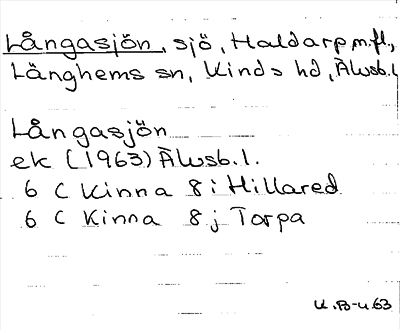 Långasjön, sjö, Haldarp m.fl.,
Länghems sn, Kinds hd, Älvsb.l
Långasjön
ek (1963) Älvsb.l.
6 C Kinna 8 i Hillared
6 C Kinna 8 j Torpa
K.B-u.63